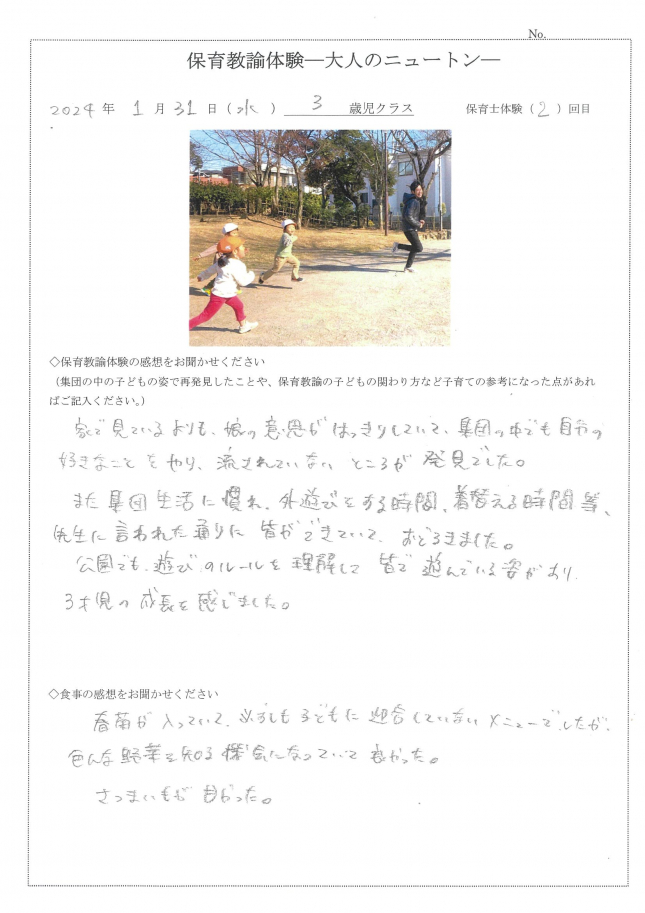 No.
保育教諭体験―大人のニュートン―
2024年 1月31日(水) 3 歳児クラス 保育士体験(2)回目
◇保育教諭体験の感想をお聞かせください
(集団の中の子どもの姿で再発見したことや、保育教諭の子どもの関わり方など子育ての参考になった点があれ
ばご記入ください。)
家で見ているよりも、娘の意思がはっきりしていて、集団の中でも自分の
好きなことをやり、流されていないところが発見でした。
また集団生活に慣れ、外遊びをする時間、着替える時間等、
先生に言われた通りに皆ができていて、おどろきました。
公園でも、遊びのルールを理解して皆で遊んでいる姿があり、
3才児の成長を感じました。
◇食事の感想をお聞かせください
春菊が入っていて、必ずしも子どもに迎合していないメニューでしたが、
色んな野菜を知る機会になっていて良かった。
さつまいもが甘かった。